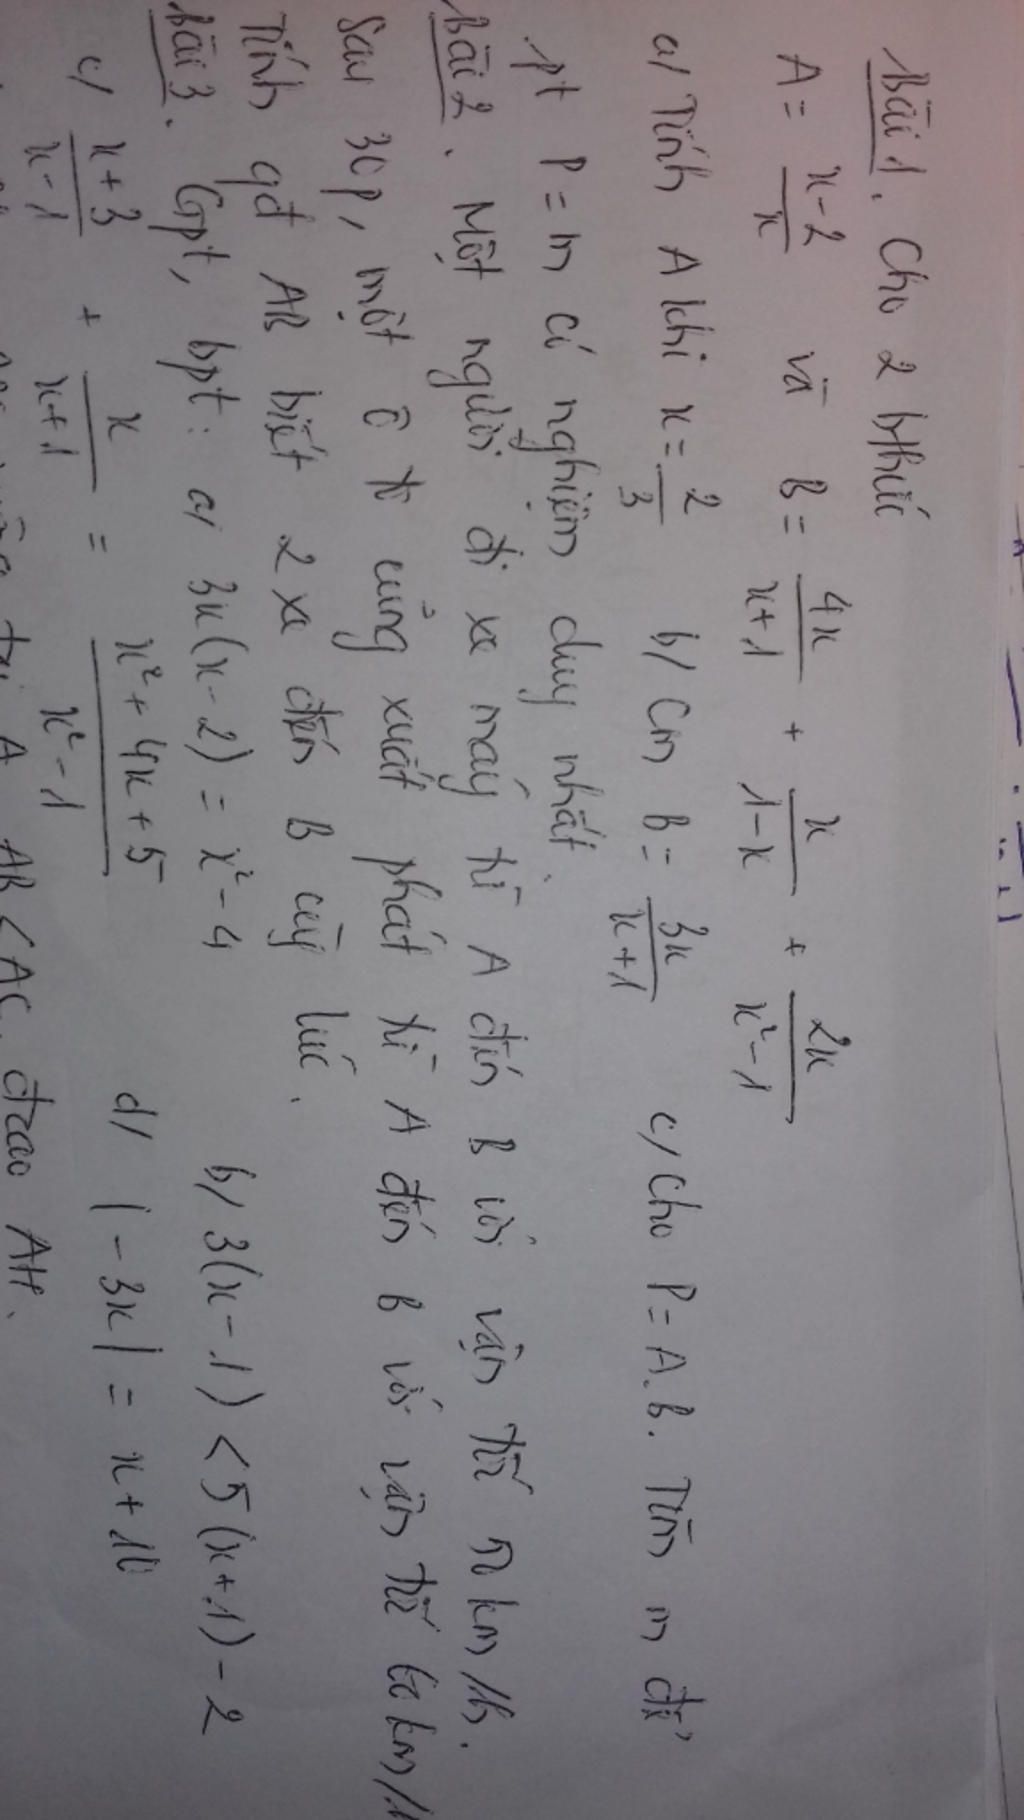 Bài 1. Cho 2 bthức
A = x-2/x và B = 4x/x+1 + x/1-x + 2x/x²-1
a/ Tính A khi x = 2/3 b/ Cm B = 3x/x+1 c/ Cho P = A.B. Tìm m để
pt P = m có nghiệm duy nhất.
Bài 2. Một người đi xe máy từ A đến B với vận tốc 50 km/h.
Sau 30p, một ô tô cũng xuất phát từ A đến B với vận tốc 60 km/
Tính qđ AB biết 2 xe đến B cùng lúc.
Bài 3. Gpt, bpt: a/ 3x(x-2) = x²-4 b/ 3(x-1) < 5(x+1) - 2
c/ x+3/x-1 + x/x+1 = x²+4x+5/x²-1 d/ |-3x| = x+10
A AB < AC, đcao AH.